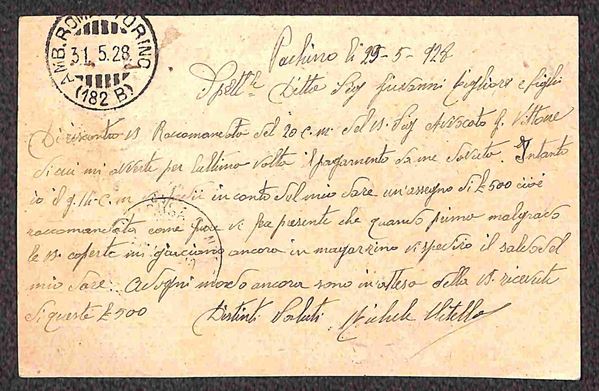 AMB. ROMA-TORINO
31.5.28
(182 B)
Pachino li 29-5-928
Spett.le Ditta Sig Giovanni e figli
Di riscontro Vs Raccomandata del 20 c.m. del Vs. Sig Avvocato
di cui mi avverte per l'ultima volta il pagamento da me dovuto. Intanto
io il g. c.m. spedii in conto del mio dare un'assegno di £500 cioè
raccomandata come pure vi fea presente che quando primo malgrado
le Vs. coperte mi giaciono ancora in magazzino vi spediro il saldo del
mio dare. Ad ogni modo ancora sono in attesa della Vs. ricevuta
di queste £500
Distinti Saluti Michele Vitella